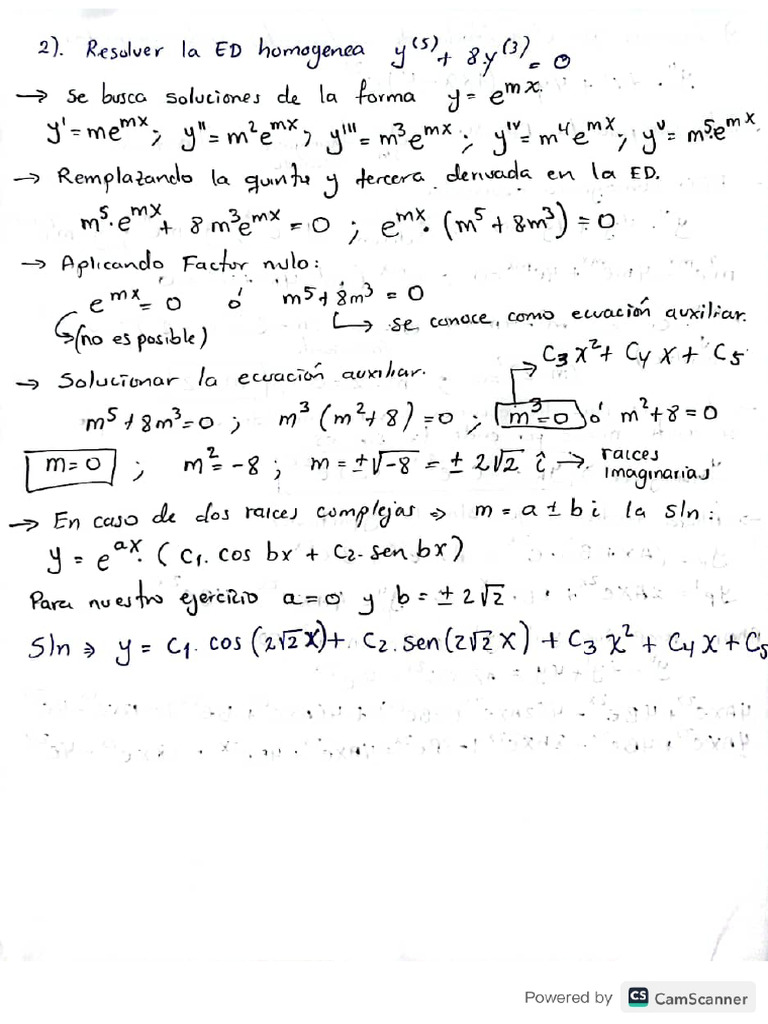 2). Resolver la ED homogenea y⁽⁵⁾ + 8y⁽³⁾ = 0
→ Se busca soluciones de la forma y = e^{mx}.
y' = me^{mx}; y'' = m²e^{mx}; y''' = m³e^{mx}; y^{IV} = m⁴e^{mx}; y^{V} = m⁵·e^{mx}
→ Remplazando la quinta y tercera derivada en la ED.
m⁵·e^{mx} + 8m³e^{mx} = 0 ; e^{mx}·(m⁵ + 8m³) = 0
→ Aplicando Factor nulo:
e^{mx} = 0 ó m⁵ + 8m³ = 0
(no es posible) ↳ se conoce, como ecuación auxiliar.
→ C₃x² + C₄x + C₅
→ Solucionar la ecuación auxiliar.
m⁵ + 8m³ = 0 ; m³(m² + 8) = 0 ; m³ = 0 ó m² + 8 = 0
m = 0 ; m² = -8 ; m = ±√-8 = ± 2√2 î → raíces imaginarias
→ En caso de dos raíces complejas ⇒ m = a ± bi la Sln:
y = e^{ax}·(C₁.cos bx + C₂.sen bx)
Para nuestro ejercicio a = 0 y b = ± 2√2.
Sln ⇒ y = C₁.cos(2√2x) + C₂.sen(2√2x) + C₃x² + C₄x + C₅
Powered by CS CamScanner